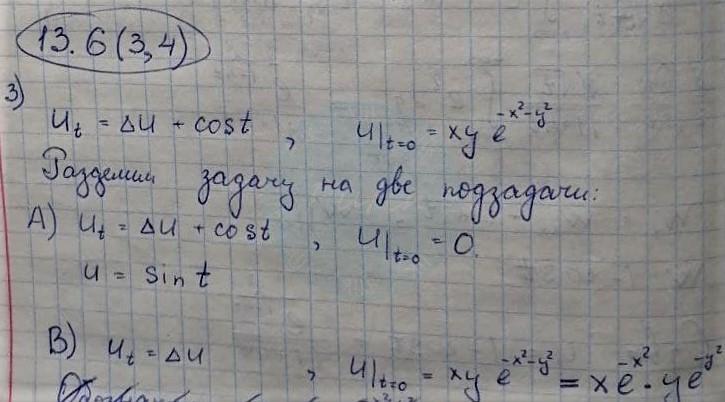 13.6(3,4)
3)
u_t = Δu + cost , u|_{t=0} = xy e^{-x²-y²}
Разделим задачу на две подзадачи:
A) u_t = Δu + cost , u|_{t=0} = 0.
u = sin t
B) u_t = Δu , u|_{t=0} = xy e^{-x²-y²} = x e^{-x²} · y e^{-y²}